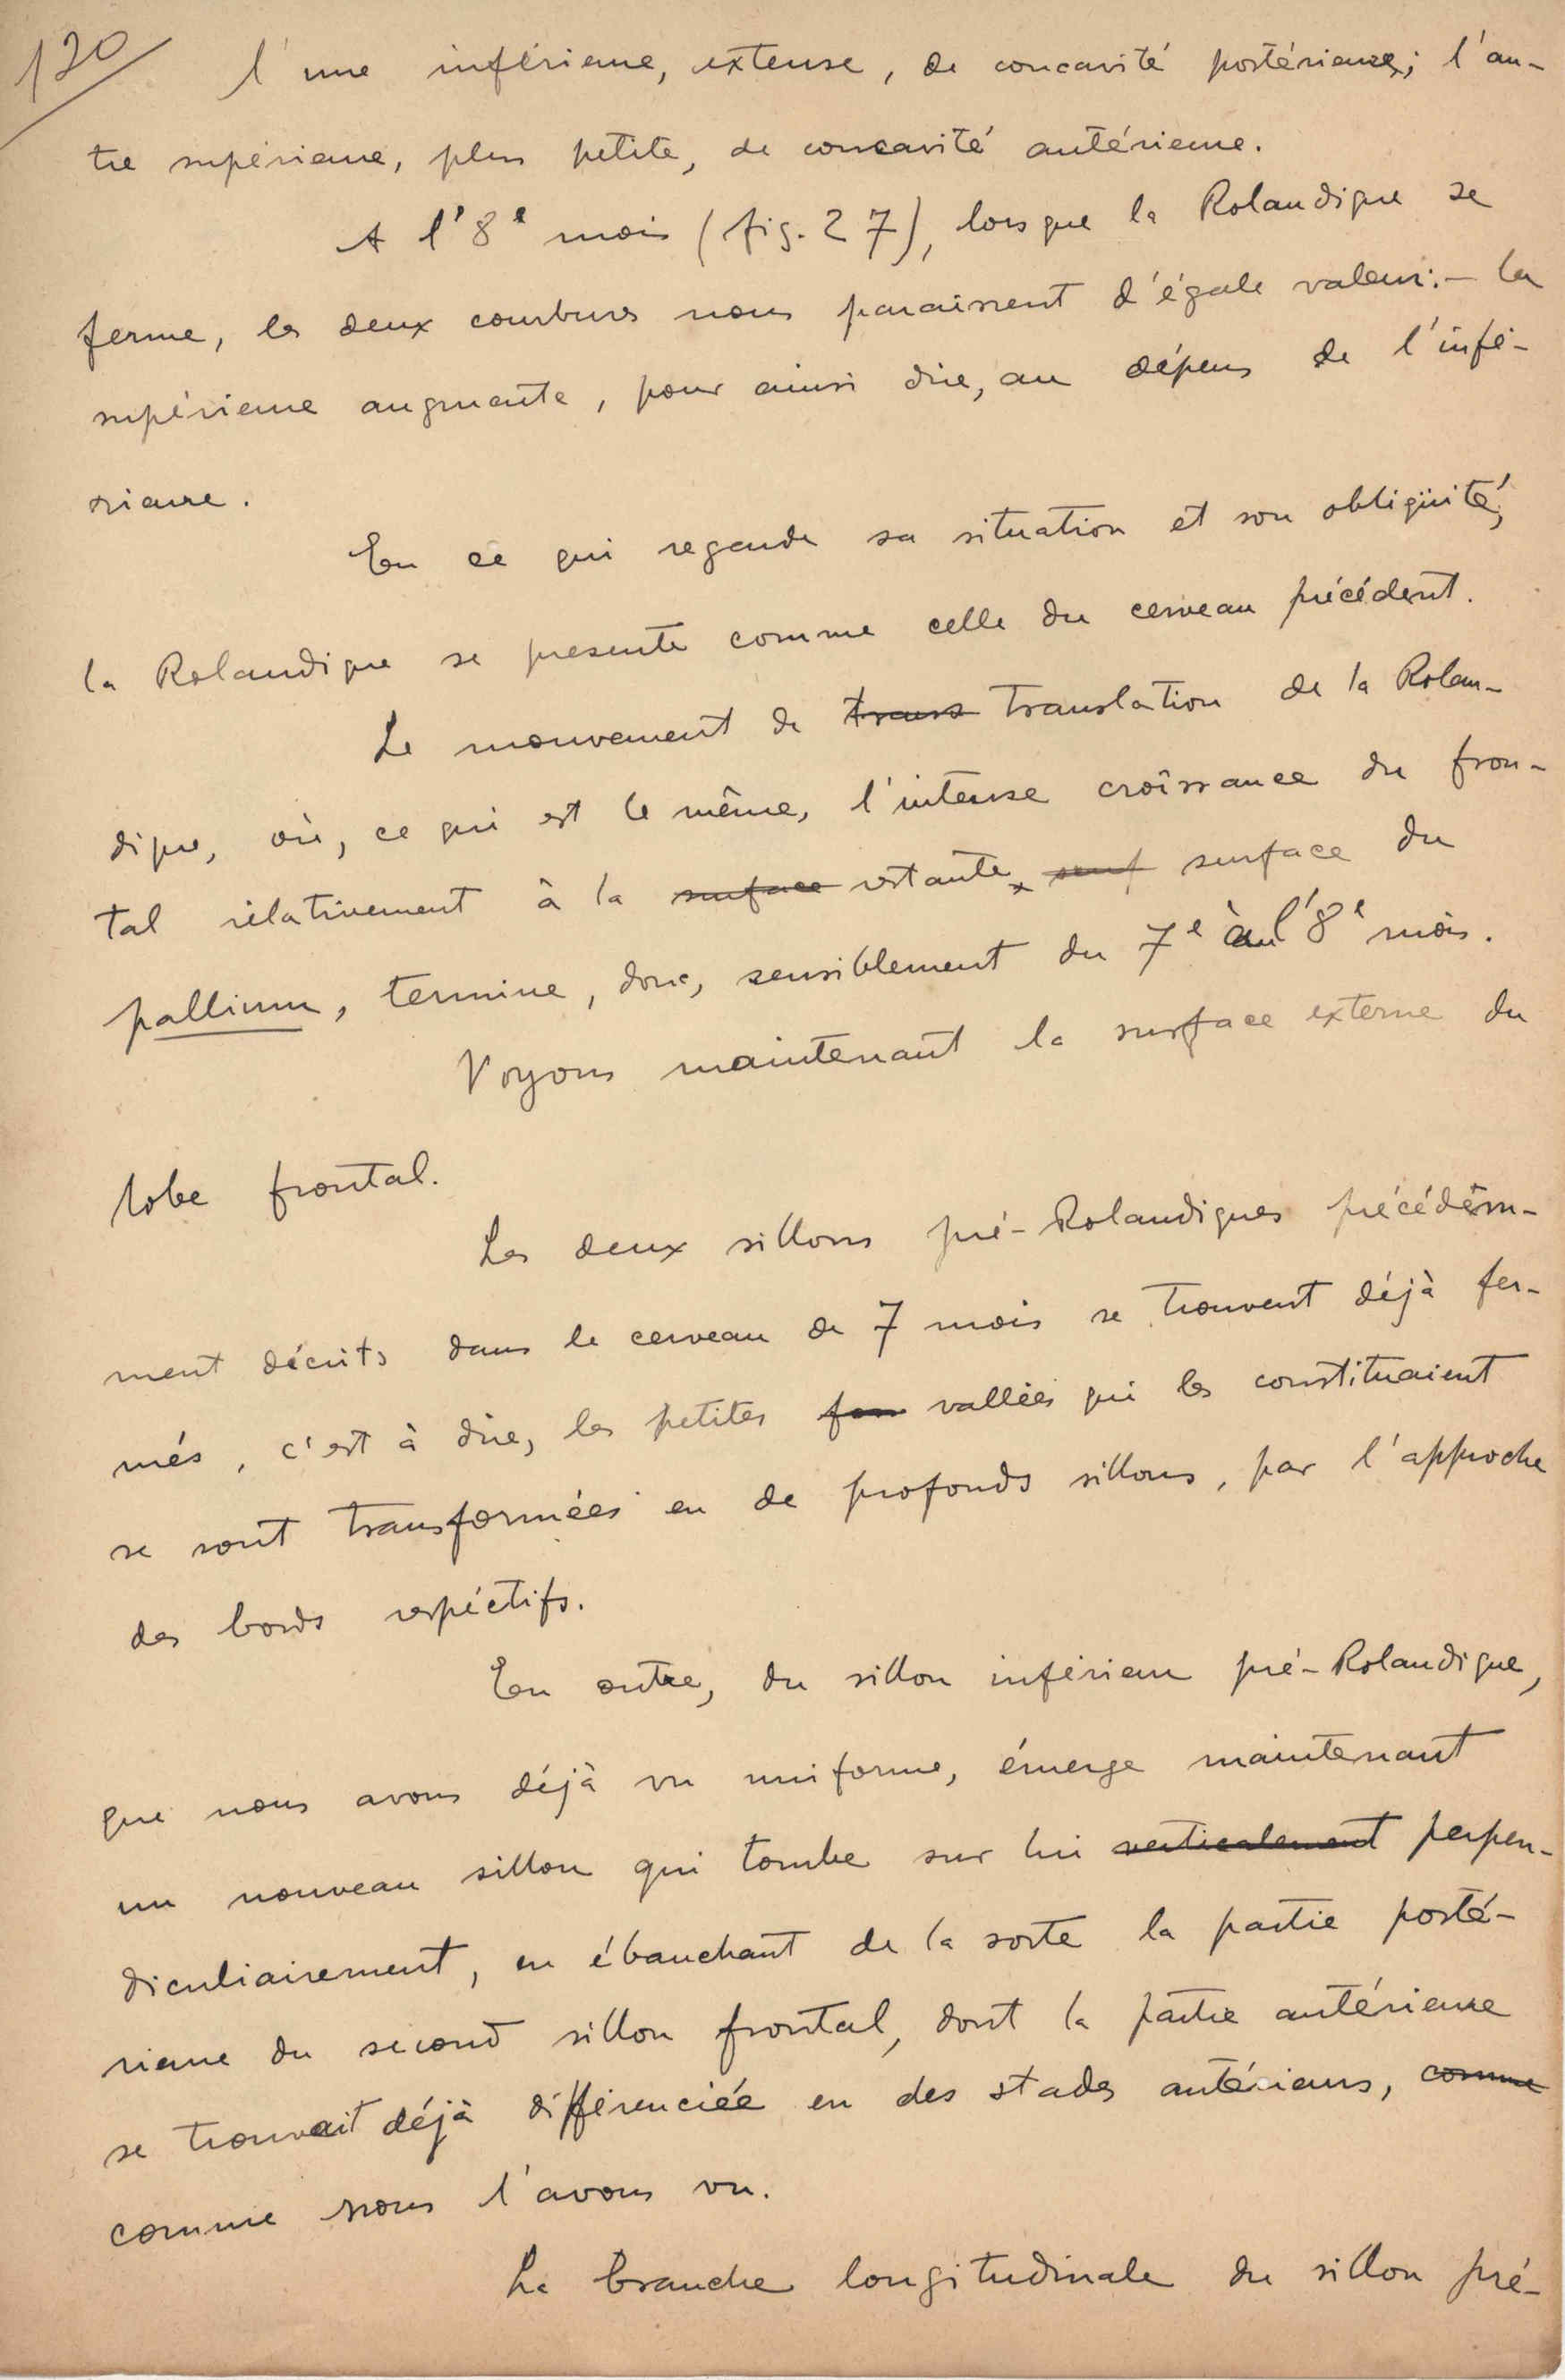 120
l'une inférieure, extense, de concavité postérieure; l'au-
tre supérieure, plus petite, de concavité antérieure.
A l'8e mois (fig. 27), lorsque la Rolandique se
ferme, les deux courbures nous paraissent d'égale valeur:— la
supérieure augmente, pour ainsi dire, au dépens de l'infé-
rieure.
En ce qui regarde sa situation et son obligüité,
la Rolandique se presente comme celle du cerveau précédent.
Le mouvement de trans translation de la Rolan-
dique, où, ce qui est le même, l'intense croîssance du fron-
tal rélativement à la surface restante, surf surface du
pallium, termine, donc, sensiblement du 7e à l'8e mois.
Voyons maintenant la surface externe du
lobe frontal.
Les deux sillons pré-Rolandiques précédem-
ment décrits dans le cerveau de 7 mois se trouvent déjà fer-
més, c'est à dire, les petites vallées qui les constituaient
se sont transformées en de profonds sillons, par l'approche
des bords respéctifs.
En outre, du sillon inférieur pré-Rolandique,
que nous avons déjà vu uniforme, émerge maintenant
un nouveau sillon qui tombe sur lui verticalement perpen-
diculiairement, en ébauchant de la sorte la partie posté-
rieure du second sillon frontal, dont la partie antérieure
se trouvait déjà différenciée en des stades antérieurs, comme
comme nous l'avons vu.
La branche longitudinale du sillon pré-